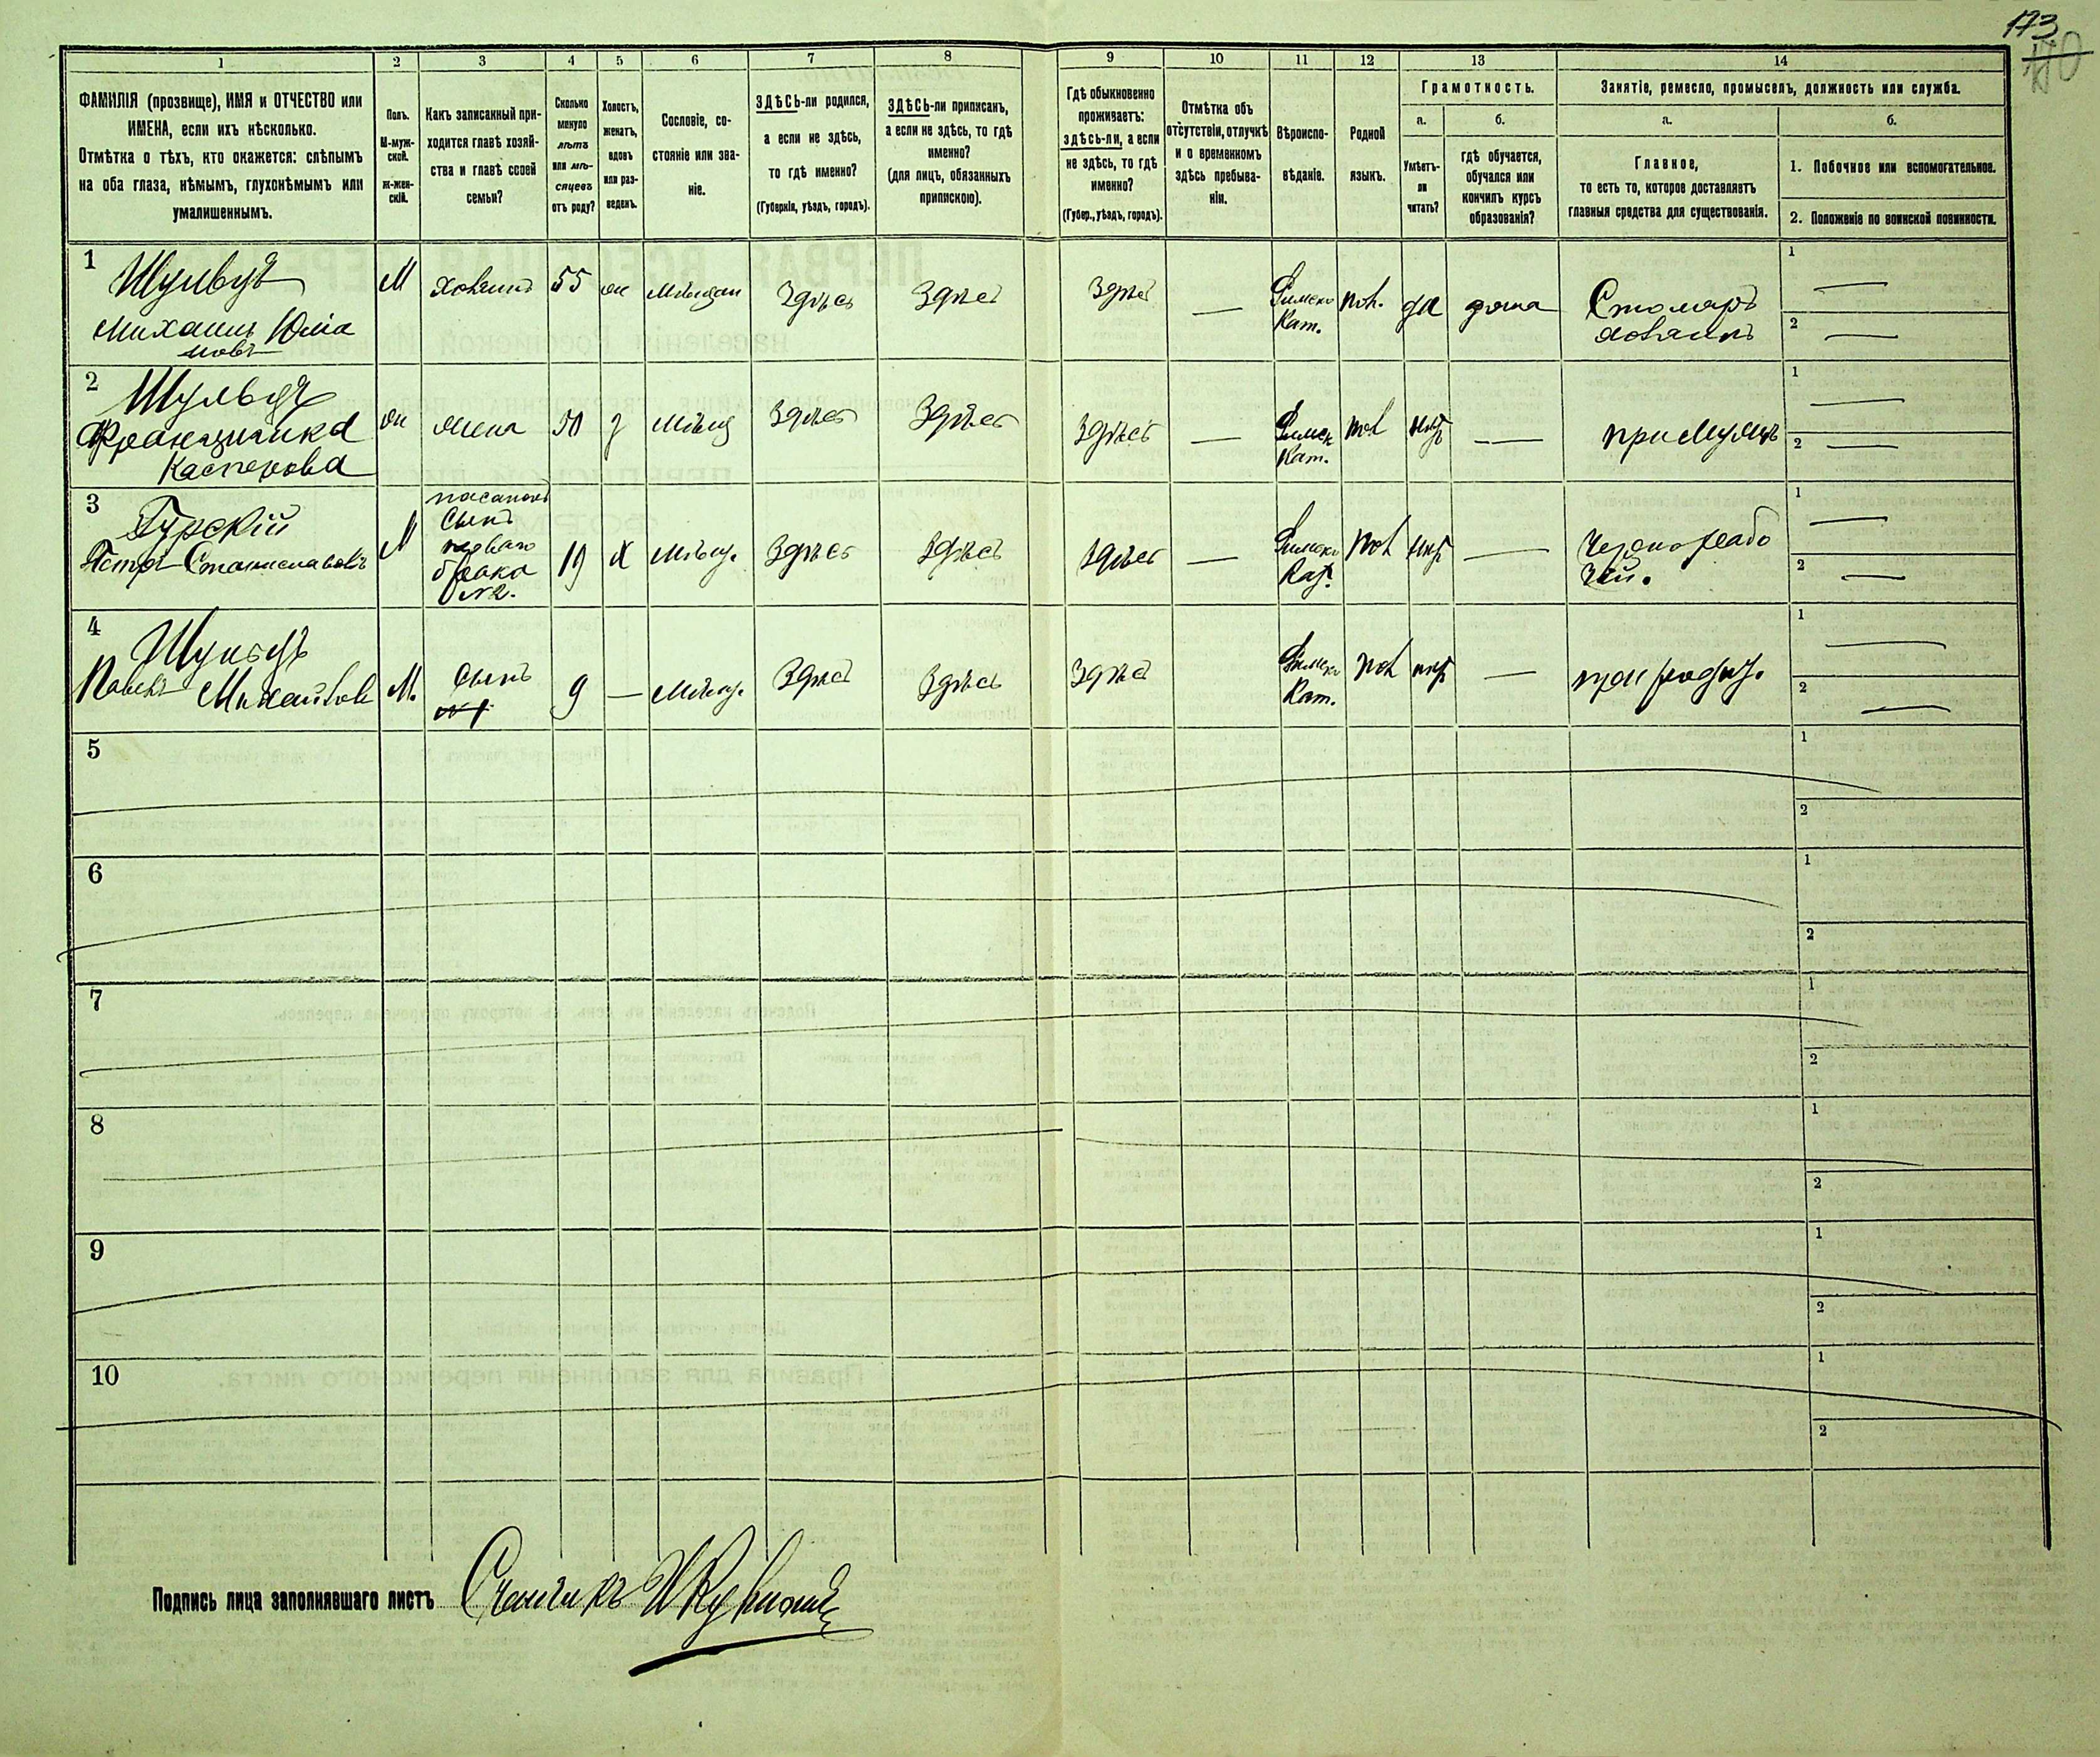 173
170
1
2
3
4
5
6
7
8
9
10
11
12
13
14
ФАМИЛІЯ (прозвище), ИМЯ и ОТЧЕСТВО или
ИМЕНА, если ихъ нѣсколько.
Отмѣтка о тѣхъ, кто окажется: слѣпымъ
на оба глаза, нѣмымъ, глухонѣмымъ или
умалишеннымъ.
Полъ.
М-муж-
ской.
Ж-жен-
скій.
Какъ записанный при-
ходится главѣ хозяй-
ства и главѣ своей
семьи?
Сколько
минуло
лѣтъ
или мѣ-
сяцевъ
отъ роду?
Холостъ,
женатъ,
вдовъ
или раз-
веденъ.
Сословіе, со-
стояніе или зва-
ніе.
ЗДѢСЬ-ли родился,
а если не здѣсь,
то гдѣ именно?
(Губернія, уѣздъ, городъ).
ЗДѢСЬ-ли приписанъ,
а если не здѣсь, то гдѣ
именно?
(для лицъ, обязанныхъ
припискою).
Гдѣ обыкновенно
проживаетъ:
здѣсь-ли, а если
не здѣсь, то гдѣ
именно?
(Губер., уѣздъ, городъ).
Отмѣтка объ
отсутствіи, отлучкѣ
и о временномъ
здѣсь пребыва-
ніи.
Вѣроиспо-
вѣданіе.
Родной
языкъ.
Грамотность.
а.
Умѣетъ-
ли
читать?
б.
гдѣ обучается,
обучался или
кончилъ курсъ
образованія?
Занятіе, ремесло, промыселъ, должность или служба.
а.
Главное,
то есть то, которое доставляетъ
главныя средства для существованія.
б.
1. Побочное или вспомогательное.
2. Положеніе по воинской повинности.
1
Михаилъ Юліа
новъ
М
хозяинъ
55
Мѣщан
Здѣсь
Здѣсь
Здѣсь
—
Римско
Кат.
пол.
да
дома
Столяръ
хозяинъ
1 —
2 —
2
Францишка
Касперова
жена
50
Мѣщ
Здѣсь
Здѣсь
Здѣсь
—
Римск
Кат.
пол
—
при мужѣ
1 —
2 —
3
Гурскій
Петръ Станиславовъ
М
сынъ
перваго
брака
19
Х
Мѣщ.
Здѣсь
Здѣсь
Здѣсь
—
Римско
Кат.
пол
—
Чернорабо
чій.
1 —
2 —
4
Павелъ Михайловъ
М.
Сынъ
№ 1
9
—
Мѣщ.
Здѣсь
Здѣсь
Здѣсь
Римско
Кат.
пол
—
при родит.
1 —
2 —
5
1
2
6
1
2
7
1
2
8
1
2
9
1
2
10
1
2
Подпись лица заполнявшаго листъ Счетчикъ